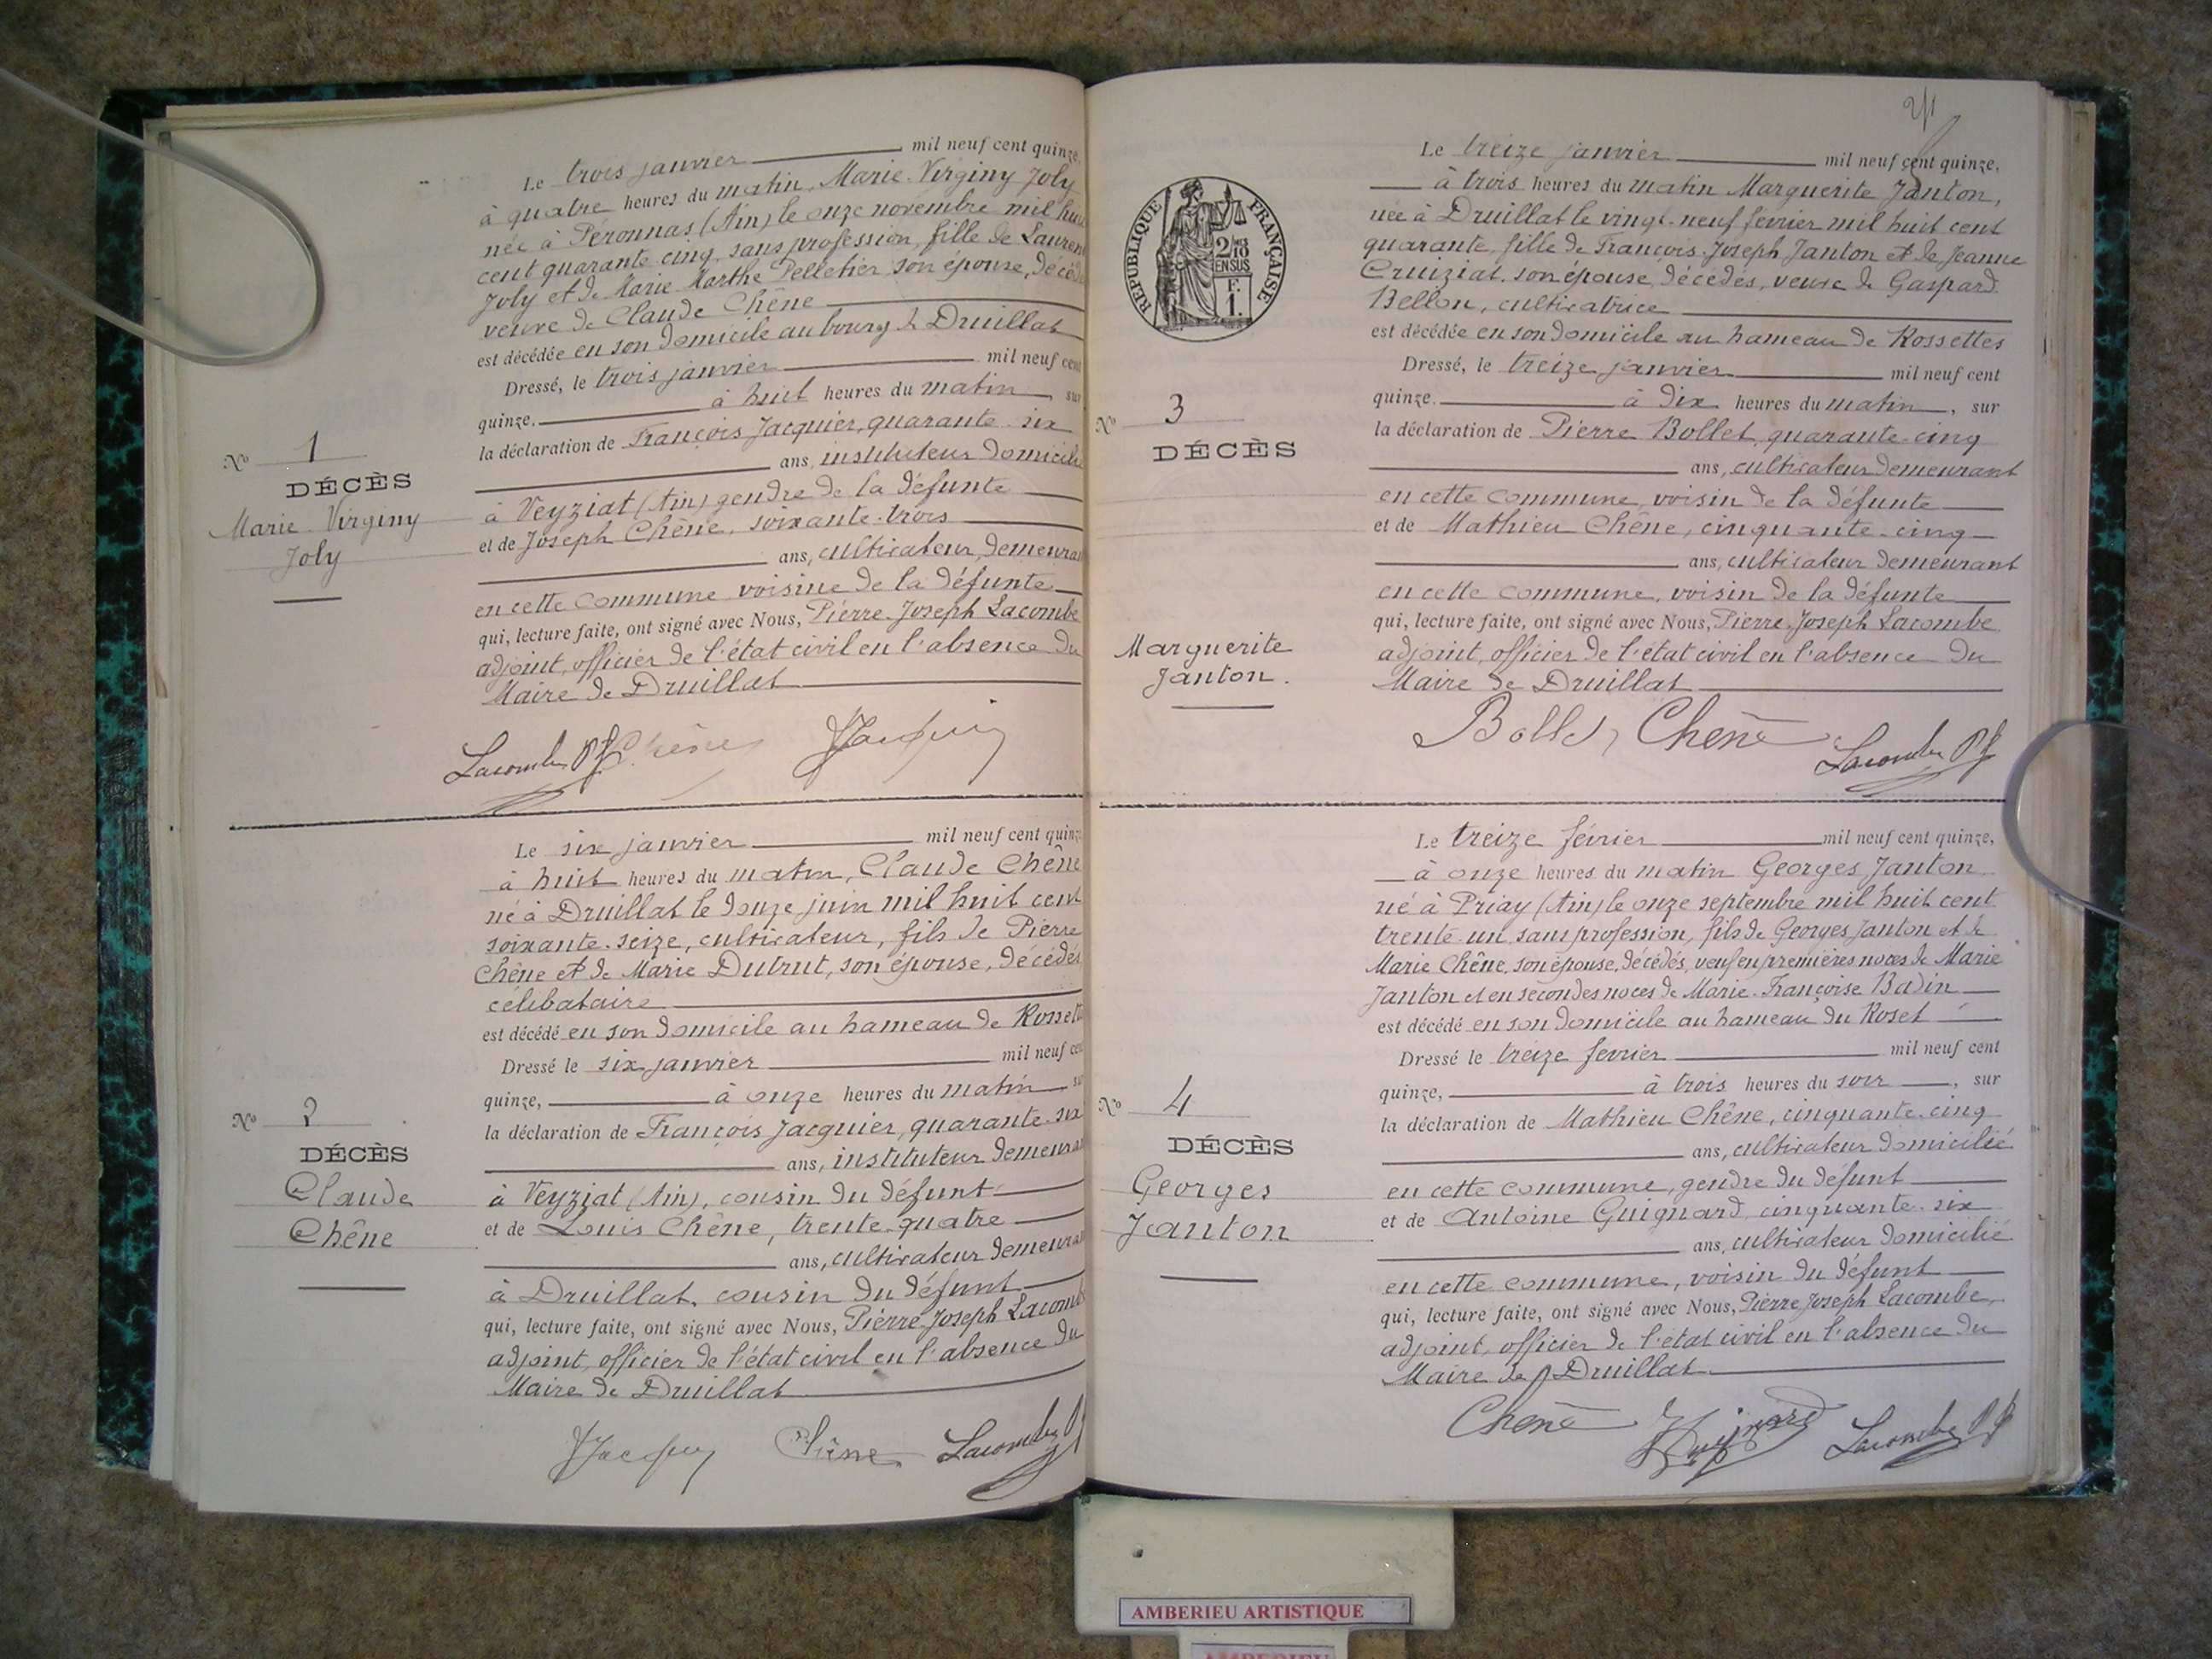 Le trois janvier mil neuf cent quinze,
à quatre heures du matin, Marie-Virginy Joly
née à Péronnas (Ain) le onze novembre mil huit
cent quarante cinq, sans profession, fille de Laurent
Joly et de Marie Marthe Pelletier son épouse, décédés
veuve de Claude Chêne
est décédée en son domicile au bourg de Druillat
Dressé, le trois janvier mil neuf cent
quinze. à huit heures du matin, sur
la déclaration de François Jacquier, quarante-six
ans, instituteur domicilié
à Veyziat (Ain) gendre de la défunte
et de Joseph Chêne, soixante-trois
ans, cultivateur, demeurant
en cette commune voisine de la défunte
qui, lecture faite, ont signé avec Nous, Pierre-Joseph Lacombe
adjoint, officier de l'état civil en l'absence du
Maire de Druillat
No 1
DÉCÈS
Marie-Virginy
Joly
Lacombe PJ Chêne Jacquier
Le six janvier mil neuf cent quinze
à huit heures du matin, Claude Chêne
né à Druillat le douze juin mil huit cent
soixante-seize, cultivateur, fils de Pierre
Chêne et de Marie Dutrut, son épouse, décédés
célibataire
est décédé en son domicile au hameau de Rossettes
Dressé le six janvier mil neuf cent
quinze, à onze heures du matin sur
la déclaration de François Jacquier, quarante-six
ans, instituteur demeurant
à Veyziat (Ain), cousin du défunt
et de Louis Chêne, trente-quatre
ans, cultivateur demeurant
à Druillat, cousin du défunt
qui, lecture faite, ont signé avec Nous, Pierre-Joseph Lacombe
adjoint, officier de l'état civil en l'absence du
Maire de Druillat
No 2
DÉCÈS
Claude
Chêne
Jacquier Chêne Lacombe PJ
RÉPUBLIQUE FRANÇAISE
2/10
EN SUS
F.
1.
Le treize janvier mil neuf cent quinze,
à trois heures du matin Marguerite Janton,
née à Druillat le vingt-neuf février mil huit cent
quarante, fille de François-Joseph Janton et de Jeanne
Cruiziat, son épouse, décédés, veuve de Gaspard
Bellon, cultivatrice
est décédée en son domicile au hameau de Rossettes
Dressé, le treize janvier mil neuf cent
quinze. à dix heures du matin, sur
la déclaration de Pierre Bollet, quarante-cinq
ans, cultivateur demeurant
en cette commune, voisin de la défunte
et de Mathieu Chêne, cinquante-cinq
ans, cultivateur demeurant
en cette commune, voisin de la défunte
qui, lecture faite, ont signé avec Nous, Pierre-Joseph Lacombe
adjoint, officier de l'état civil en l'absence du
Maire de Druillat
No 3
DÉCÈS
Marguerite
Janton.
Bollet Chêne Lacombe PJ
Le treize février mil neuf cent quinze,
à onze heures du matin Georges Janton
né à Priay (Ain) le onze septembre mil huit cent
trente-un sans profession, fils de Georges Janton et de
Marie Chêne, son épouse, décédés, veuf en premières noces de Marie
Janton et en secondes noces de Marie-Françoise Badin
est décédé en son domicile au hameau du Roset
Dressé le treize février mil neuf cent
quinze, à trois heures du soir, sur
la déclaration de Mathieu Chêne, cinquante-cinq
ans, cultivateur domicilié
en cette commune, gendre du défunt
et de Antoine Guignard, cinquante-six
ans, cultivateur domicilié
en cette commune, voisin du défunt
qui, lecture faite, ont signé avec Nous, Pierre Joseph Lacombe,
adjoint, officier de l'état civil en l'absence du
Maire de Druillat
No 4
DÉCÈS
Georges
Janton
Chêne Guignard Lacombe PJ
AMBERIEU ARTISTIQUE
AMBERIEU